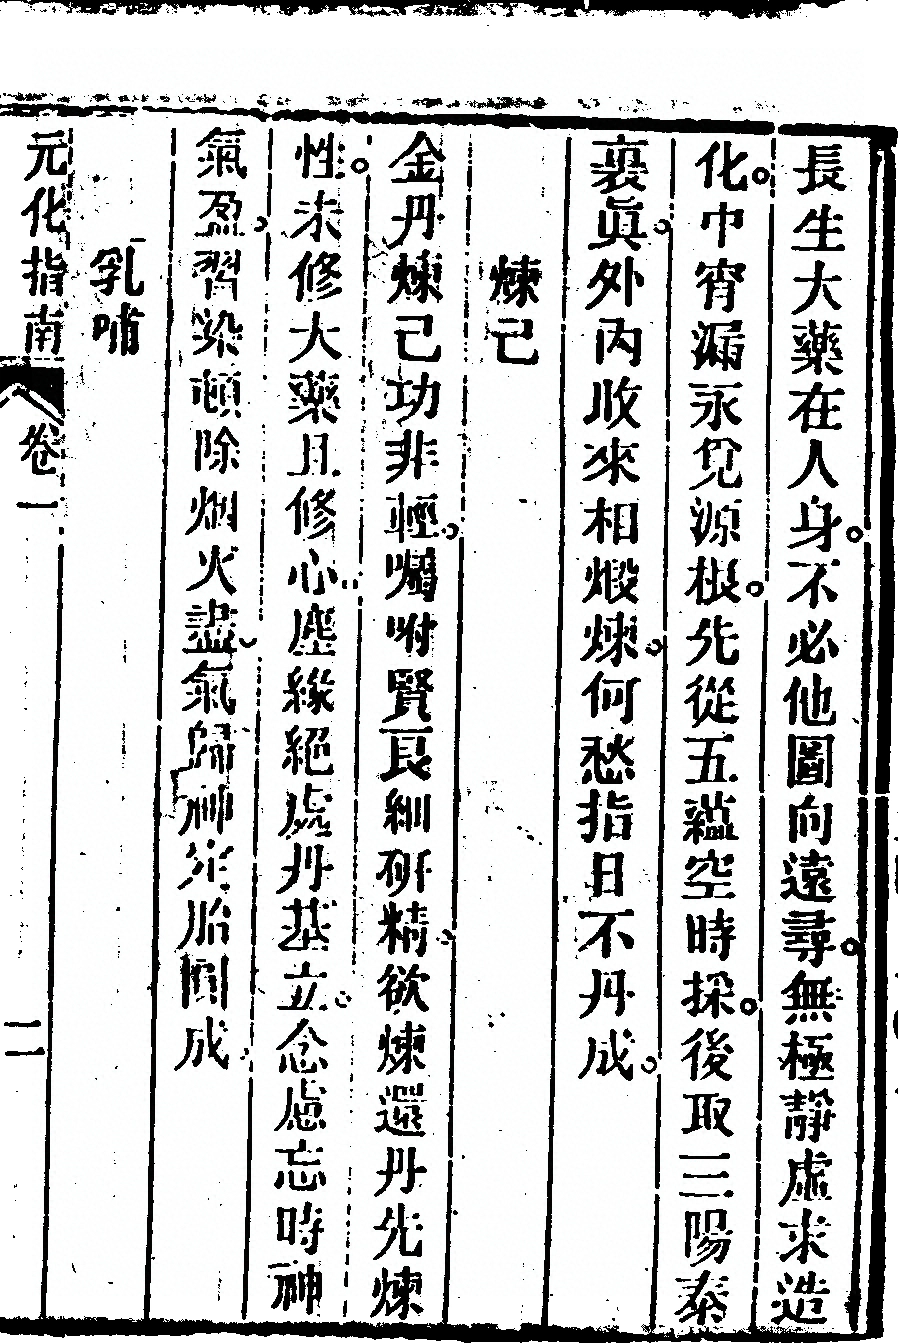 長生大藥在人身不必他圖向遠尋無極靜虛求造
化中宵漏永覓源根先從五蘊空時採後取三陽泰
裏眞外內收來相煅煉何愁指日不丹成
煉己
金丹煉己功非輕囑咐賢良細研精欲煉還丹先煉
性未修大藥且修心塵緣絕處丹基立念慮忘時神
氣盈習染頓除烟火盡氣歸神定胎圓成
乳哺
元化指南 卷一 二